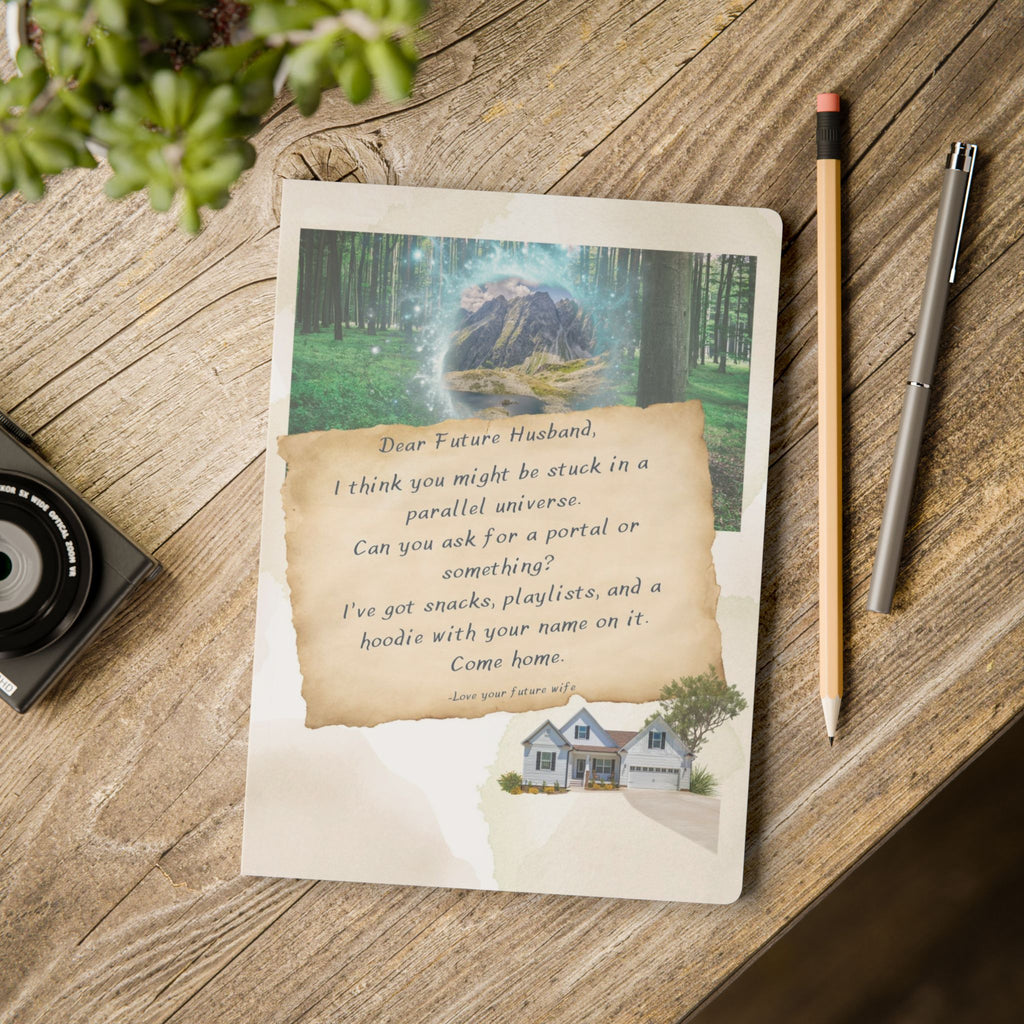 Dear Future Husband,
I think you might be stuck in a
parallel universe.
Can you ask for a portal or
something?
I've got snacks, playlists, and a
hoodie with your name on it.
Come home.
-Love your future wife
5X WIDE OPTICAL ZOOM VR